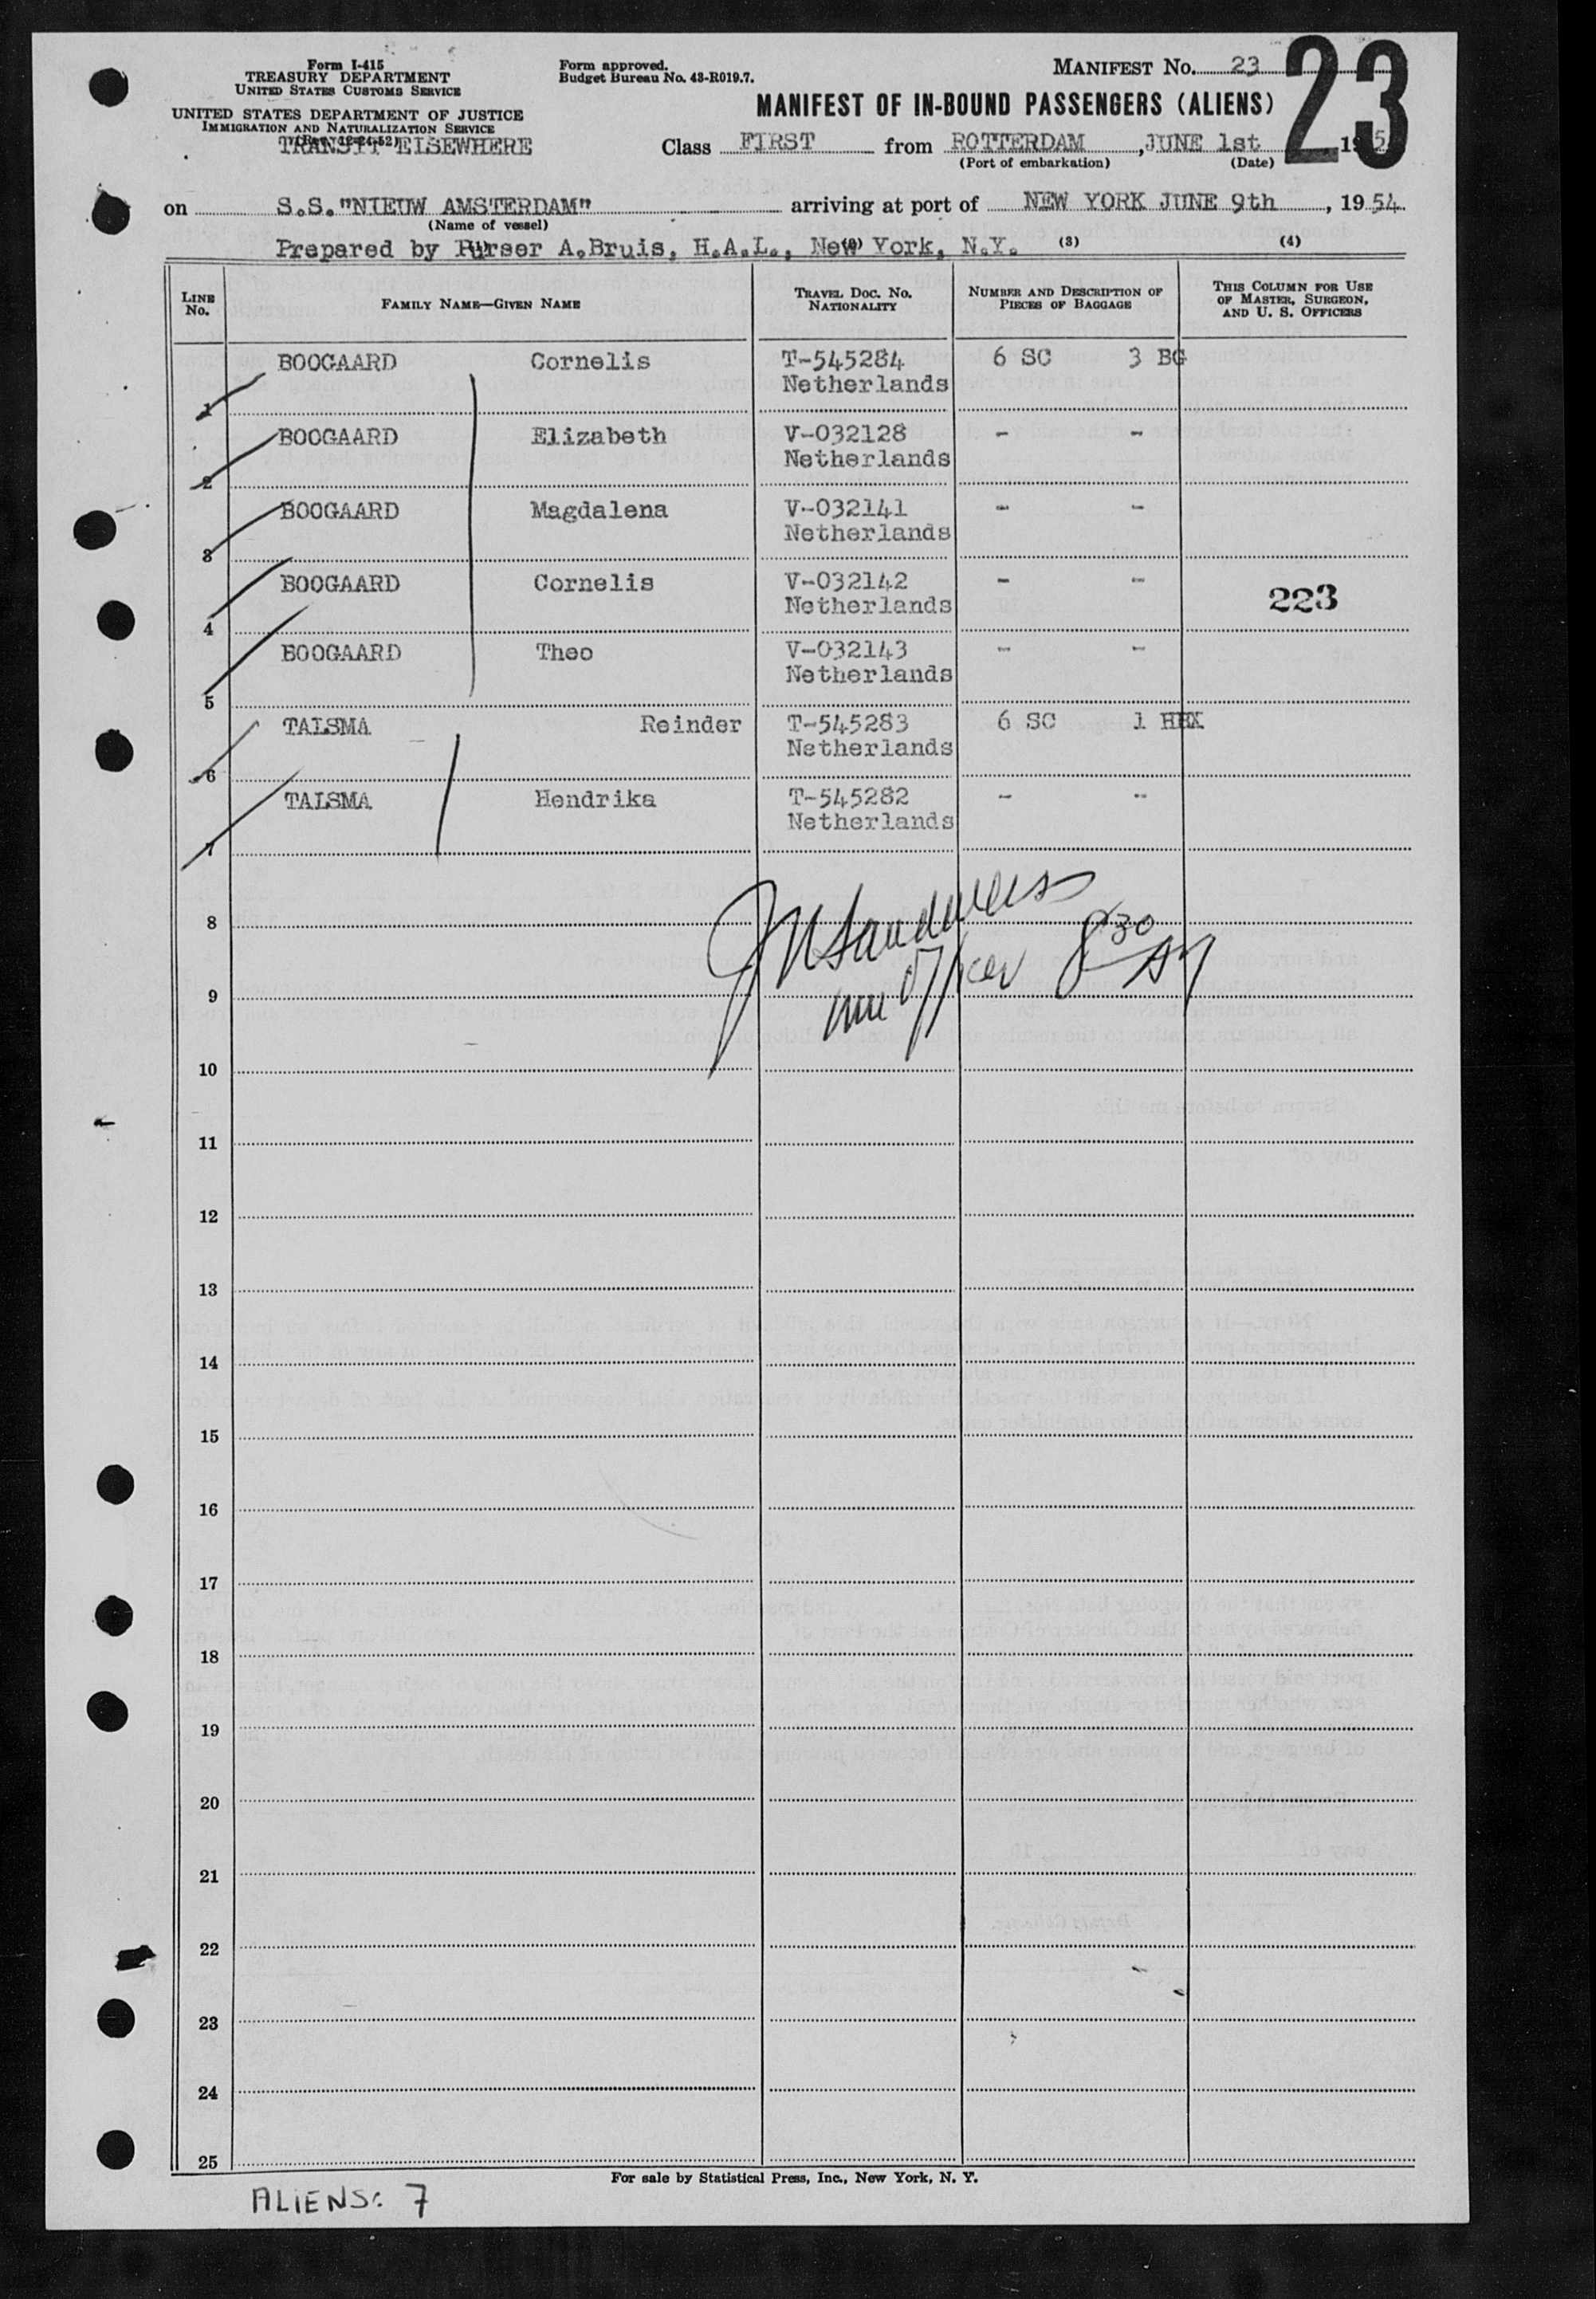 Form I-415
TREASURY DEPARTMENT
UNITED STATES CUSTOMS SERVICE
UNITED STATES DEPARTMENT OF JUSTICE
IMMIGRATION AND NATURALIZATION SERVICE
TRANSIT ELSEWHERE
Form approved.
Budget Bureau No. 43-R019.7.
MANIFEST NO. 23
23
MANIFEST OF IN-BOUND PASSENGERS (ALIENS)
Class FIRST from ROTTERDAM, JUNE 1st 195
(Port of embarkation) (Date)
on S.S."NIEUW AMSTERDAM" arriving at port of NEW YORK JUNE 9th, 1954
(Name of vessel)
Prepared by Purser A.Bruis, H.A.L., New York, N.Y. (3) (4)
LINE NO. FAMILY NAME—GIVEN NAME TRAVEL DOC. NO. NATIONALITY NUMBER AND DESCRIPTION OF PIECES OF BAGGAGE THIS COLUMN FOR USE OF MASTER, SURGEON, AND U. S. OFFICERS
BOOGAARD Cornelis T-545284 6 SC 3 BG
Netherlands
1
BOOGAARD Elizabeth V-032128 - -
Netherlands
2
BOOGAARD Magdalena V-032141 - -
Netherlands
3
BOOGAARD Cornelis V-032142 - -
Netherlands
223
4
BOOGAARD Theo V-032143 - -
Netherlands
5
TALSMA Reinder T-545283 6 SC 1 HBX
Netherlands
6
TALSMA Hendrika T-545282 - -
Netherlands
7
8
officer 8 30 AM
9
10
11
12
13
14
15
16
17
18
19
20
21
22
23
24
25
For sale by Statistical Press, Inc., New York, N. Y.
ALIENS: 7